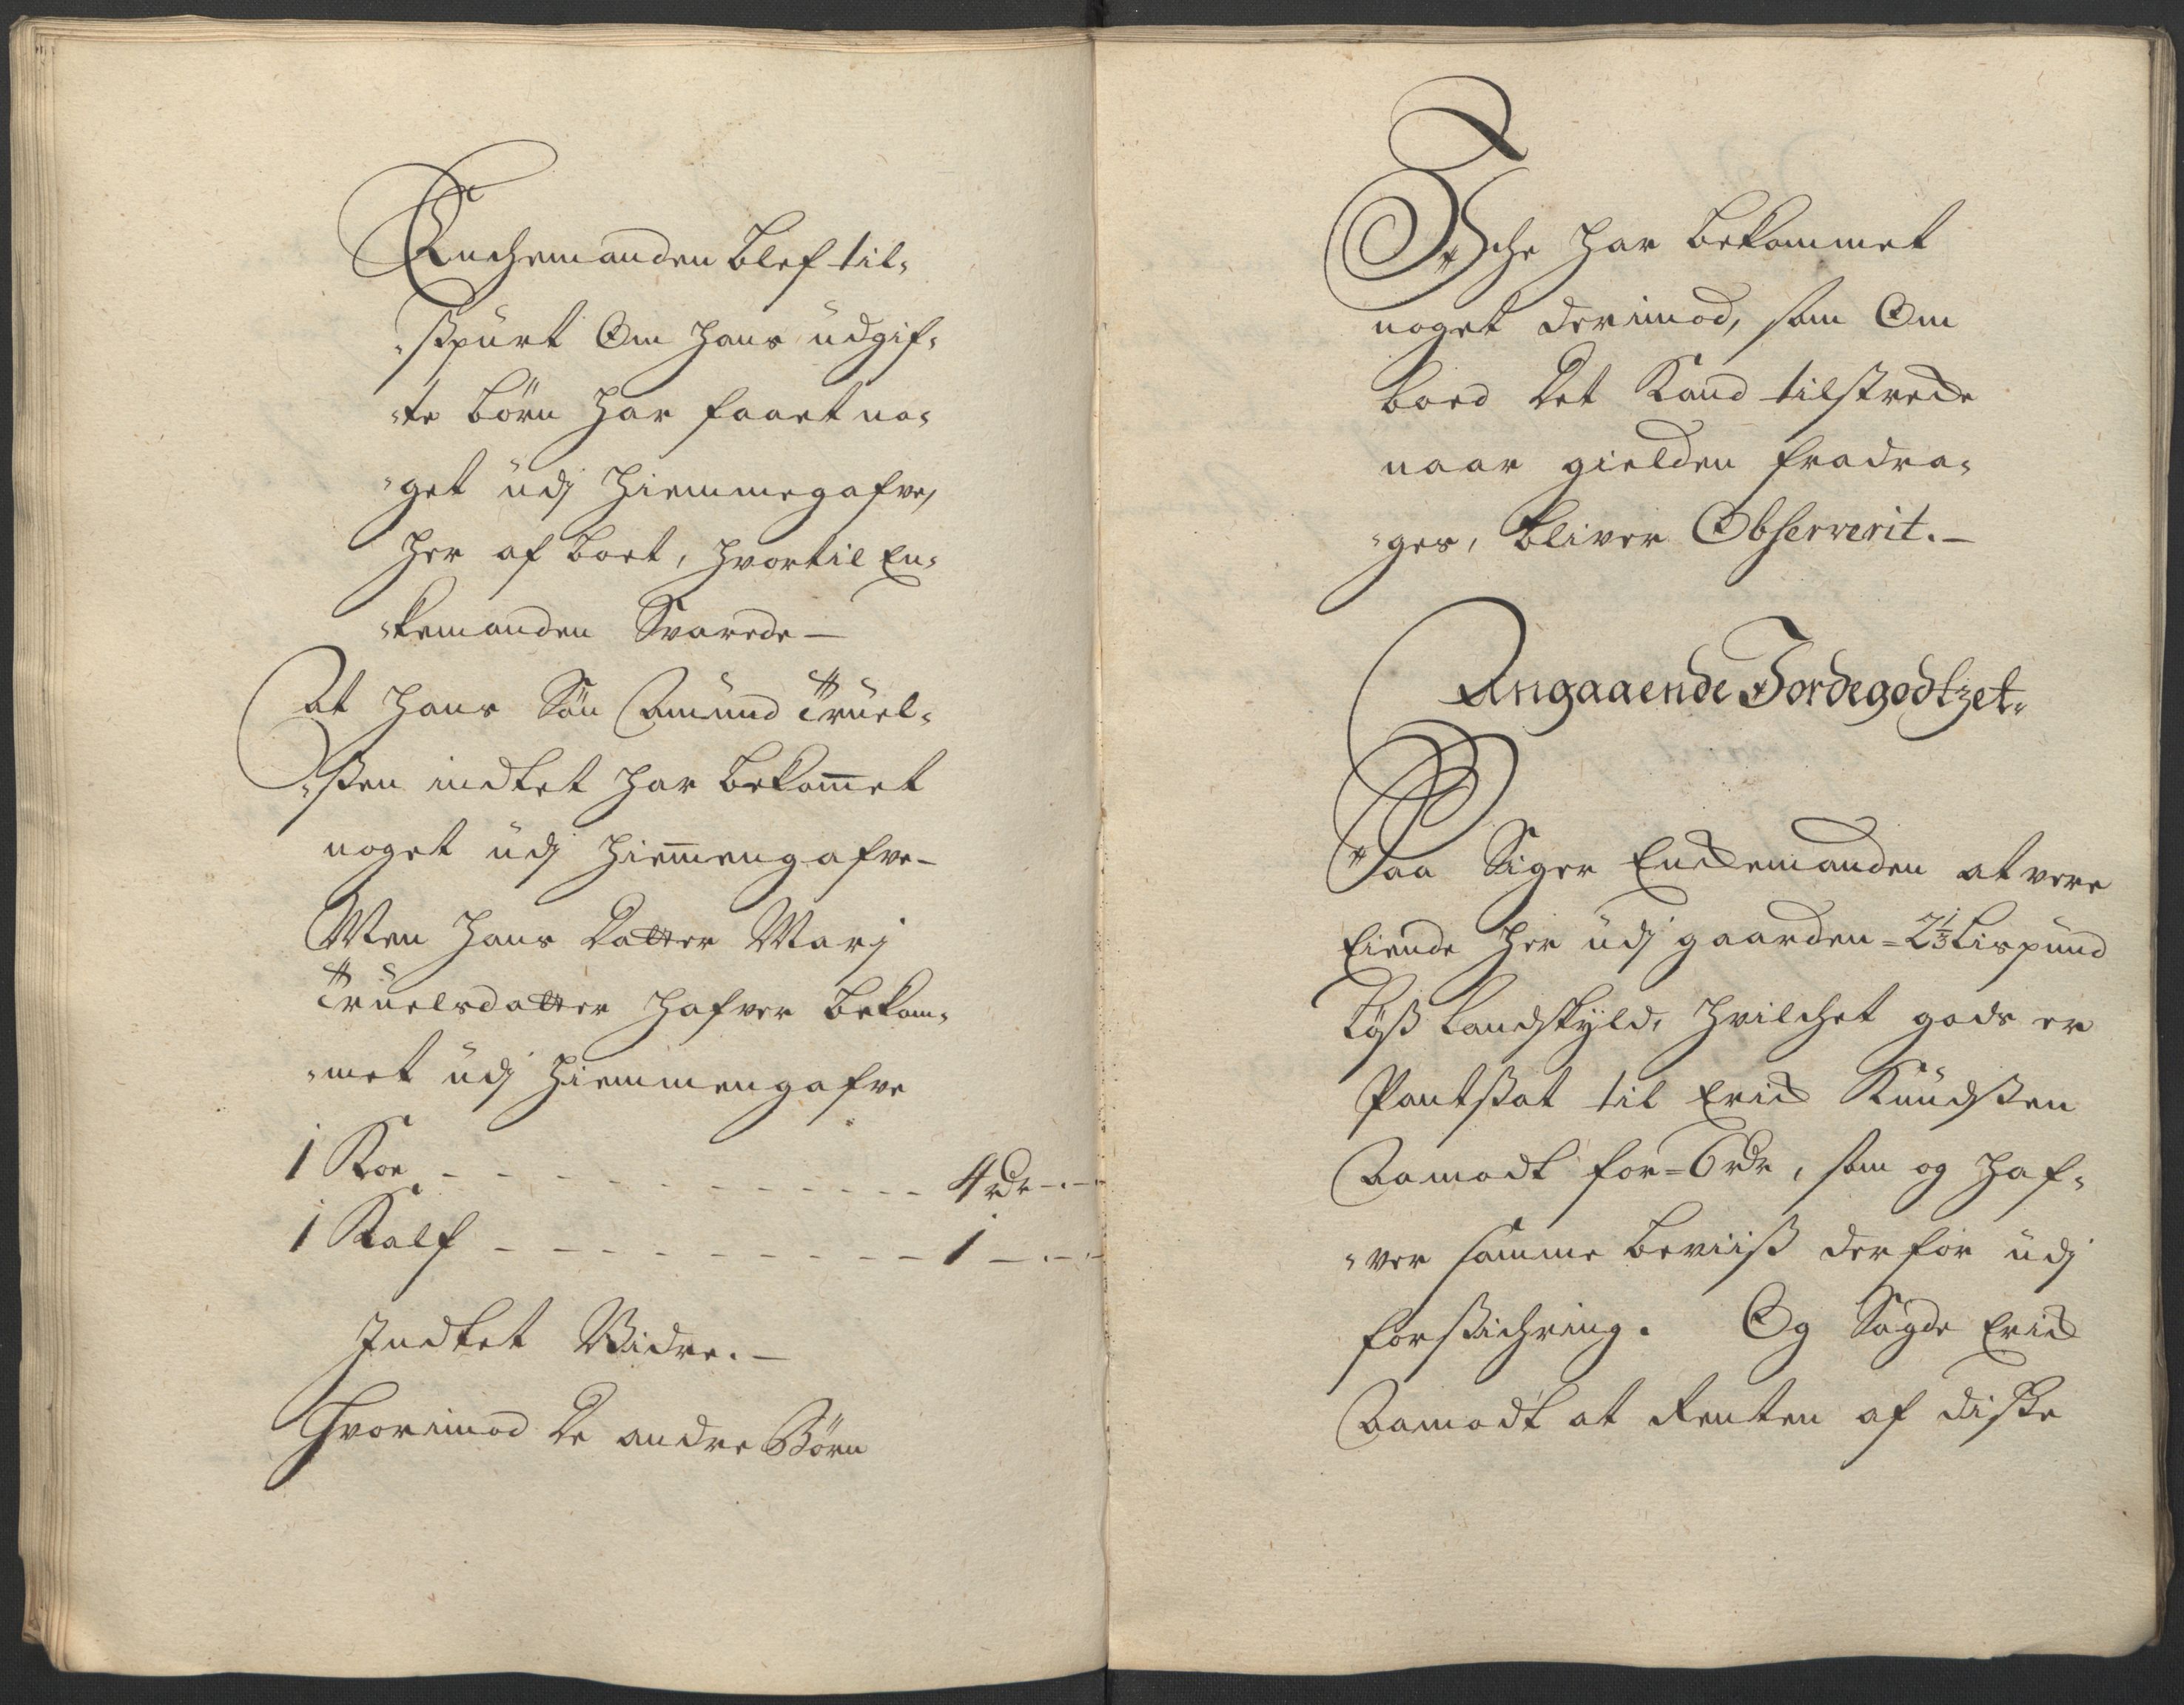 Enchemanden blef til-
-spurt Om hans udgif-
-te börn har faaet no-
-get udj hiemmegafve,
her af boet, hvortil En-
-kemanden Svarede —
At hans Sön Amund Truel-
-ßen indtet har bekom̅et
noget udj hiem̅engafve —
Men hans Datter Marj
Truelsdatter hafver bekom-
-met udj hiemmengafve
1 Koe - - - - - - - - - - 4 rdr - . -
1 Kalf - - - - - - - - - - 1 - . -
Indtet Widre. —
Hvorimod De andre Börn
Iche har bekommet
noget derimod, som Om
boed Det Kand tilstrecke
naar gielden fradra-
-ges, bliver Observerit. —
Angaaende Jordegodtzet.
Saa Siger Enckemanden at vere
Eiende her udj gaarden = 2 1/3 Lispund
Töß Landskyld, hvilchet gods er
Pantsat til Erick Knudßen
Aamodt for = 6 rdr, som og haf-
-ver samme beviiß derfor udj
forsichring. Og Sagde Erick
Aamodt at Renten af diße